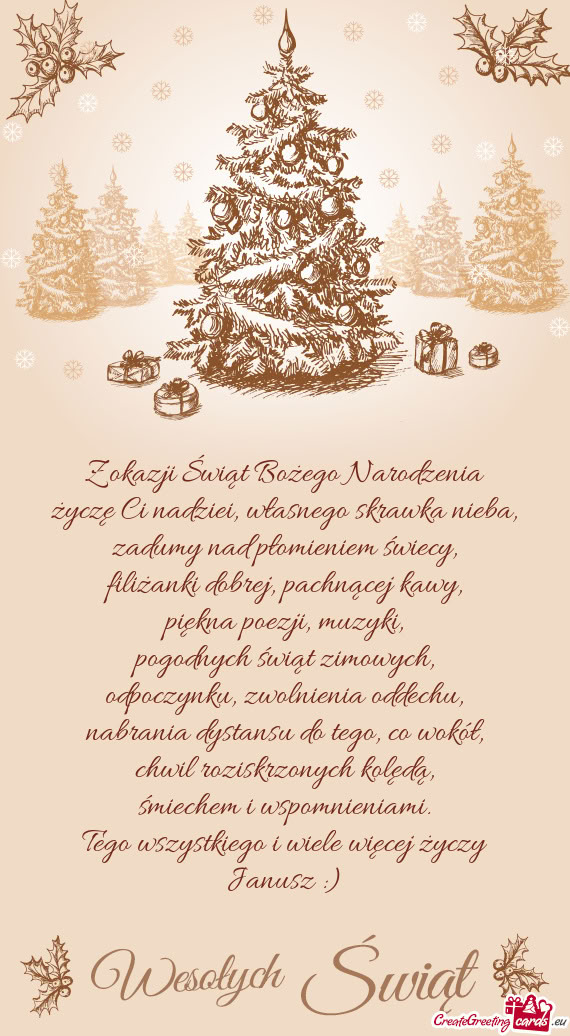 Z okazji Świąt Bożego Narodzenia
życzę Ci nadziei, własnego skrawka nieba,
zadumy nad płomieniem świecy,
filiżanki dobrej, pachnącej kawy,
piękna poezji, muzyki,
pogodnych świąt zimowych,
odpoczynku, zwolnienia oddechu,
nabrania dystansu do tego, co wokół,
chwil roziskrzonych kolędą,
śmiechem i wspomnieniami.
Tego wszystkiego i wiele więcej życzy
Janusz :)
Wesołych Świąt
CreateGreetingcards.eu